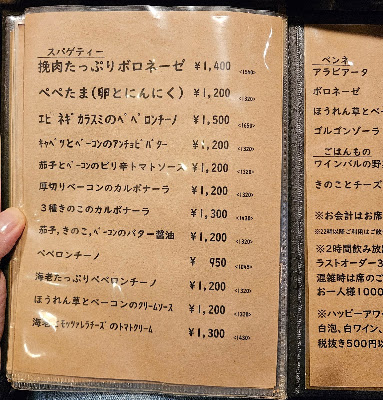 スパゲティー
挽肉たっぷりボロネーゼ ¥1,400 <1540>
ペペたま(卵とにんにく) ¥1,200 <1320>
エビ ネギ カラスミのペペロンチーノ ¥1,500 <1650>
キャベツとベーコンのアンチョビバター ¥1,200 <1320>
茄子とベーコンのピリ辛トマトソース ¥1,200 <1320>
厚切りベーコンのカルボナーラ ¥1,200 <1320>
3種きのこのカルボナーラ ¥1,300 <1430>
茄子,きのこ,ベーコンのバター醤油 ¥1,200 <1320>
ペペロンチーノ ¥ 950 <1045>
海老たっぷりペペロンチーノ ¥1,200 <1320>
ほうれん草とベーコンのクリームソース ¥1,200 <1320>
海老とモッツァレラチーズのトマトクリーム ¥1,300 <1430>
ペンネ
アラビアータ
ボロネーゼ
ほうれん草とベー
ゴルゴンゾーラ
ごはんもの
ワインバルの野
きのことチーズ
※お会計はお席
※2時間飲み放
ラストオーダー3
混雑時は席のご
お一人様1000
※ハッピーアワ
白泡、白ワイン、
税抜き500円